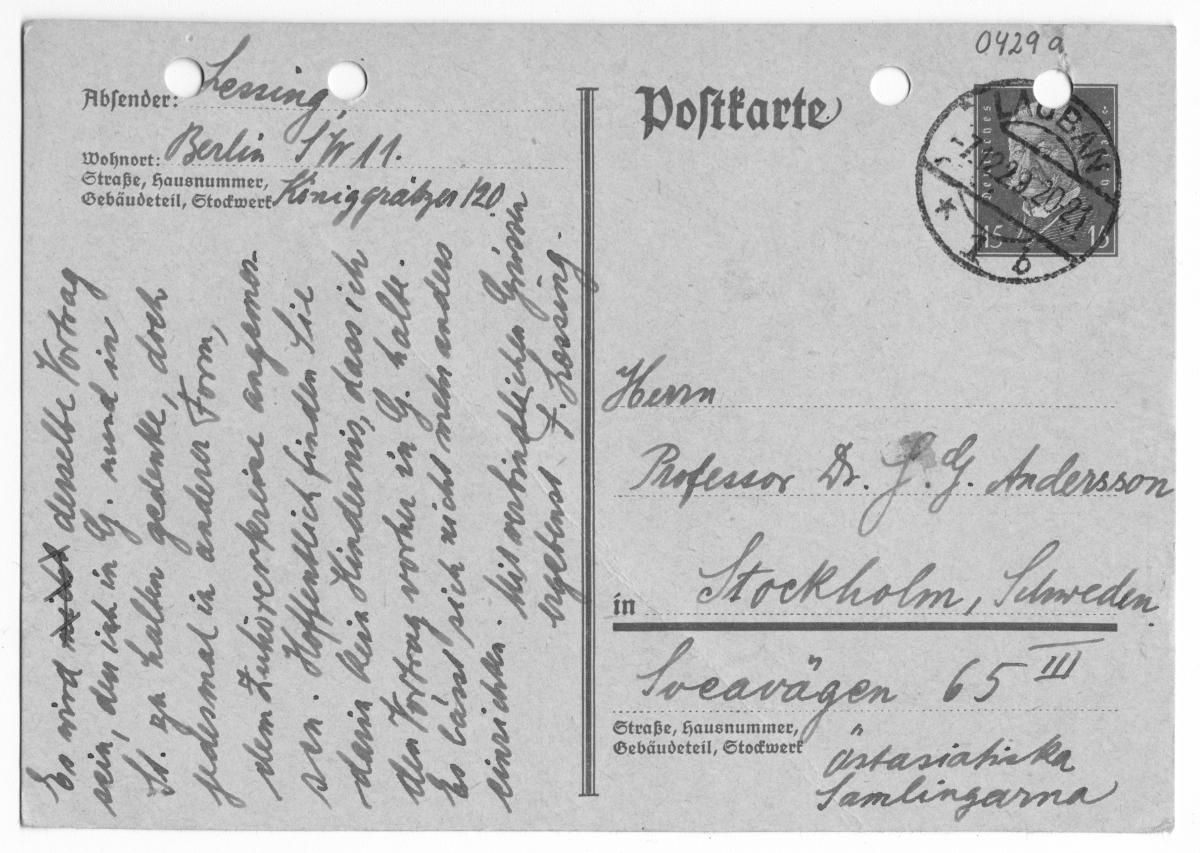 0429 a
Absender: Lessing,
Wohnort: Berlin SW 11.
Straße, Hausnummer,
Gebäudeteil, Stockwerk Königgrätzer 120
Es wird derselbe Vortrag
sein, den ich in G. und in
St. zu halten gedenke, doch
jedesmal in anderer Form,
dem Zuhörerkreise angemes-
sen. Hoffentlich finden Sie
darin kein Hindernis, dass ich
den Vortrag vorher in G. halte.
Es lässt sich nicht mehr anders
einrichten. Mit verbindlichen Grüssen
ergebenst F. Lessing.
Postkarte
LAUBAN
Deutsches
15 15
b
Herrn
Professor Dr. J. G. Andersson
in Stockholm, Schweden.
Sveavägen 65 III
Straße, Hausnummer,
Gebäudeteil, Stockwerk
Östasiatiska
Samlingarna